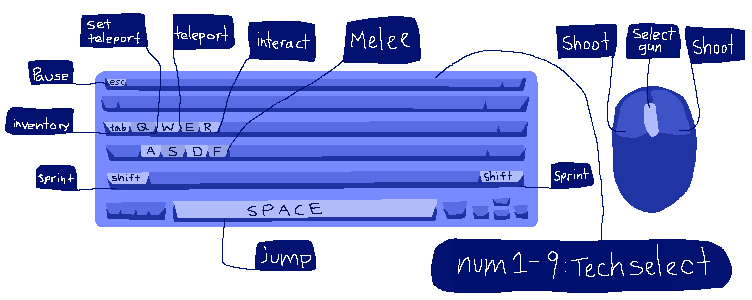 set
teleport
teleport
interact
Melee
Shoot
Select
gun
Shoot
Pause
esc
inventory
tab Q W E R
A S D F
Sprint
shift
shift
Sprint
SPACE
Jump
num 1-9: Tech select